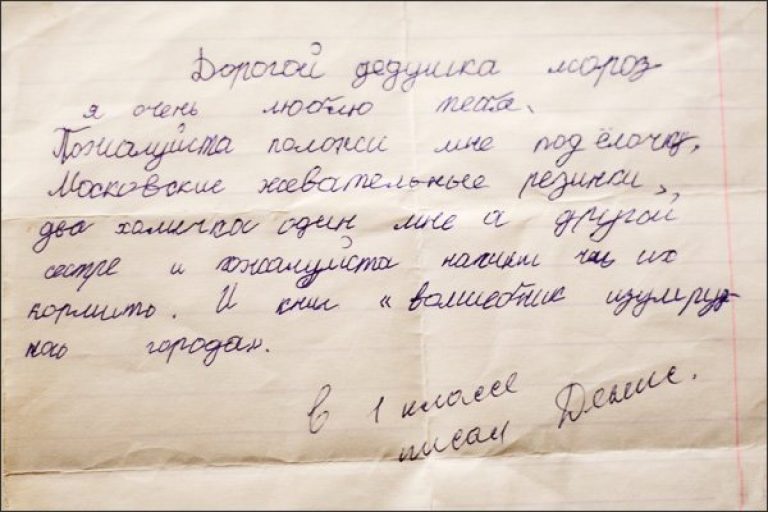 Дорогой дедушка мороз
я очень люблю тебя.
Пожалуйста положи мне под ёлочку,
Московские жевательные резинки,
два хомичка один мне а другой
сестре и пожалуйста напиши чем их
кормить. И книгу «волшебник изумруд
ного города».
В 1 классе
писал Денис.